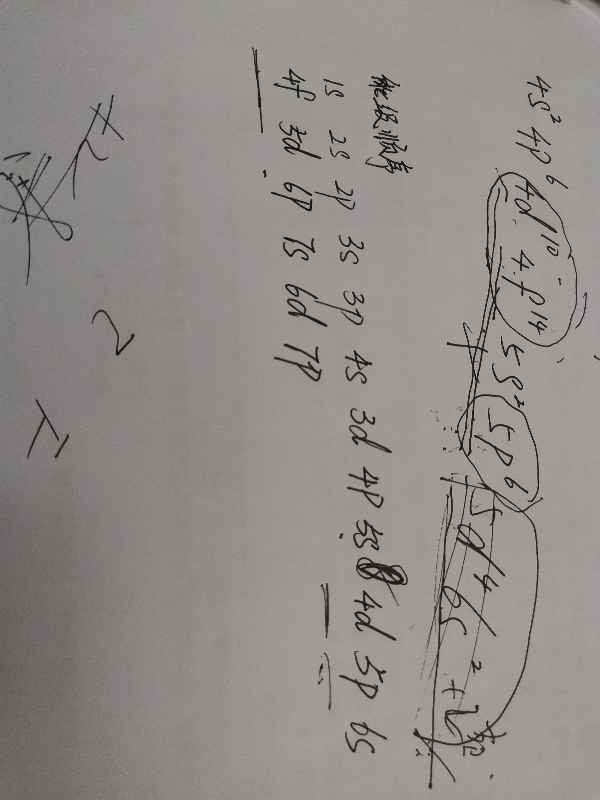 4s² 4p⁶ 4d¹⁰ 4f¹⁴ 5s² 5p⁶ 5d⁴ 6s² +
能级顺序
1s 2s 2p 3s 3p 4s 3d 4p 5s 4d 5p 6s
4f 5d 6p 7s 6d 7p